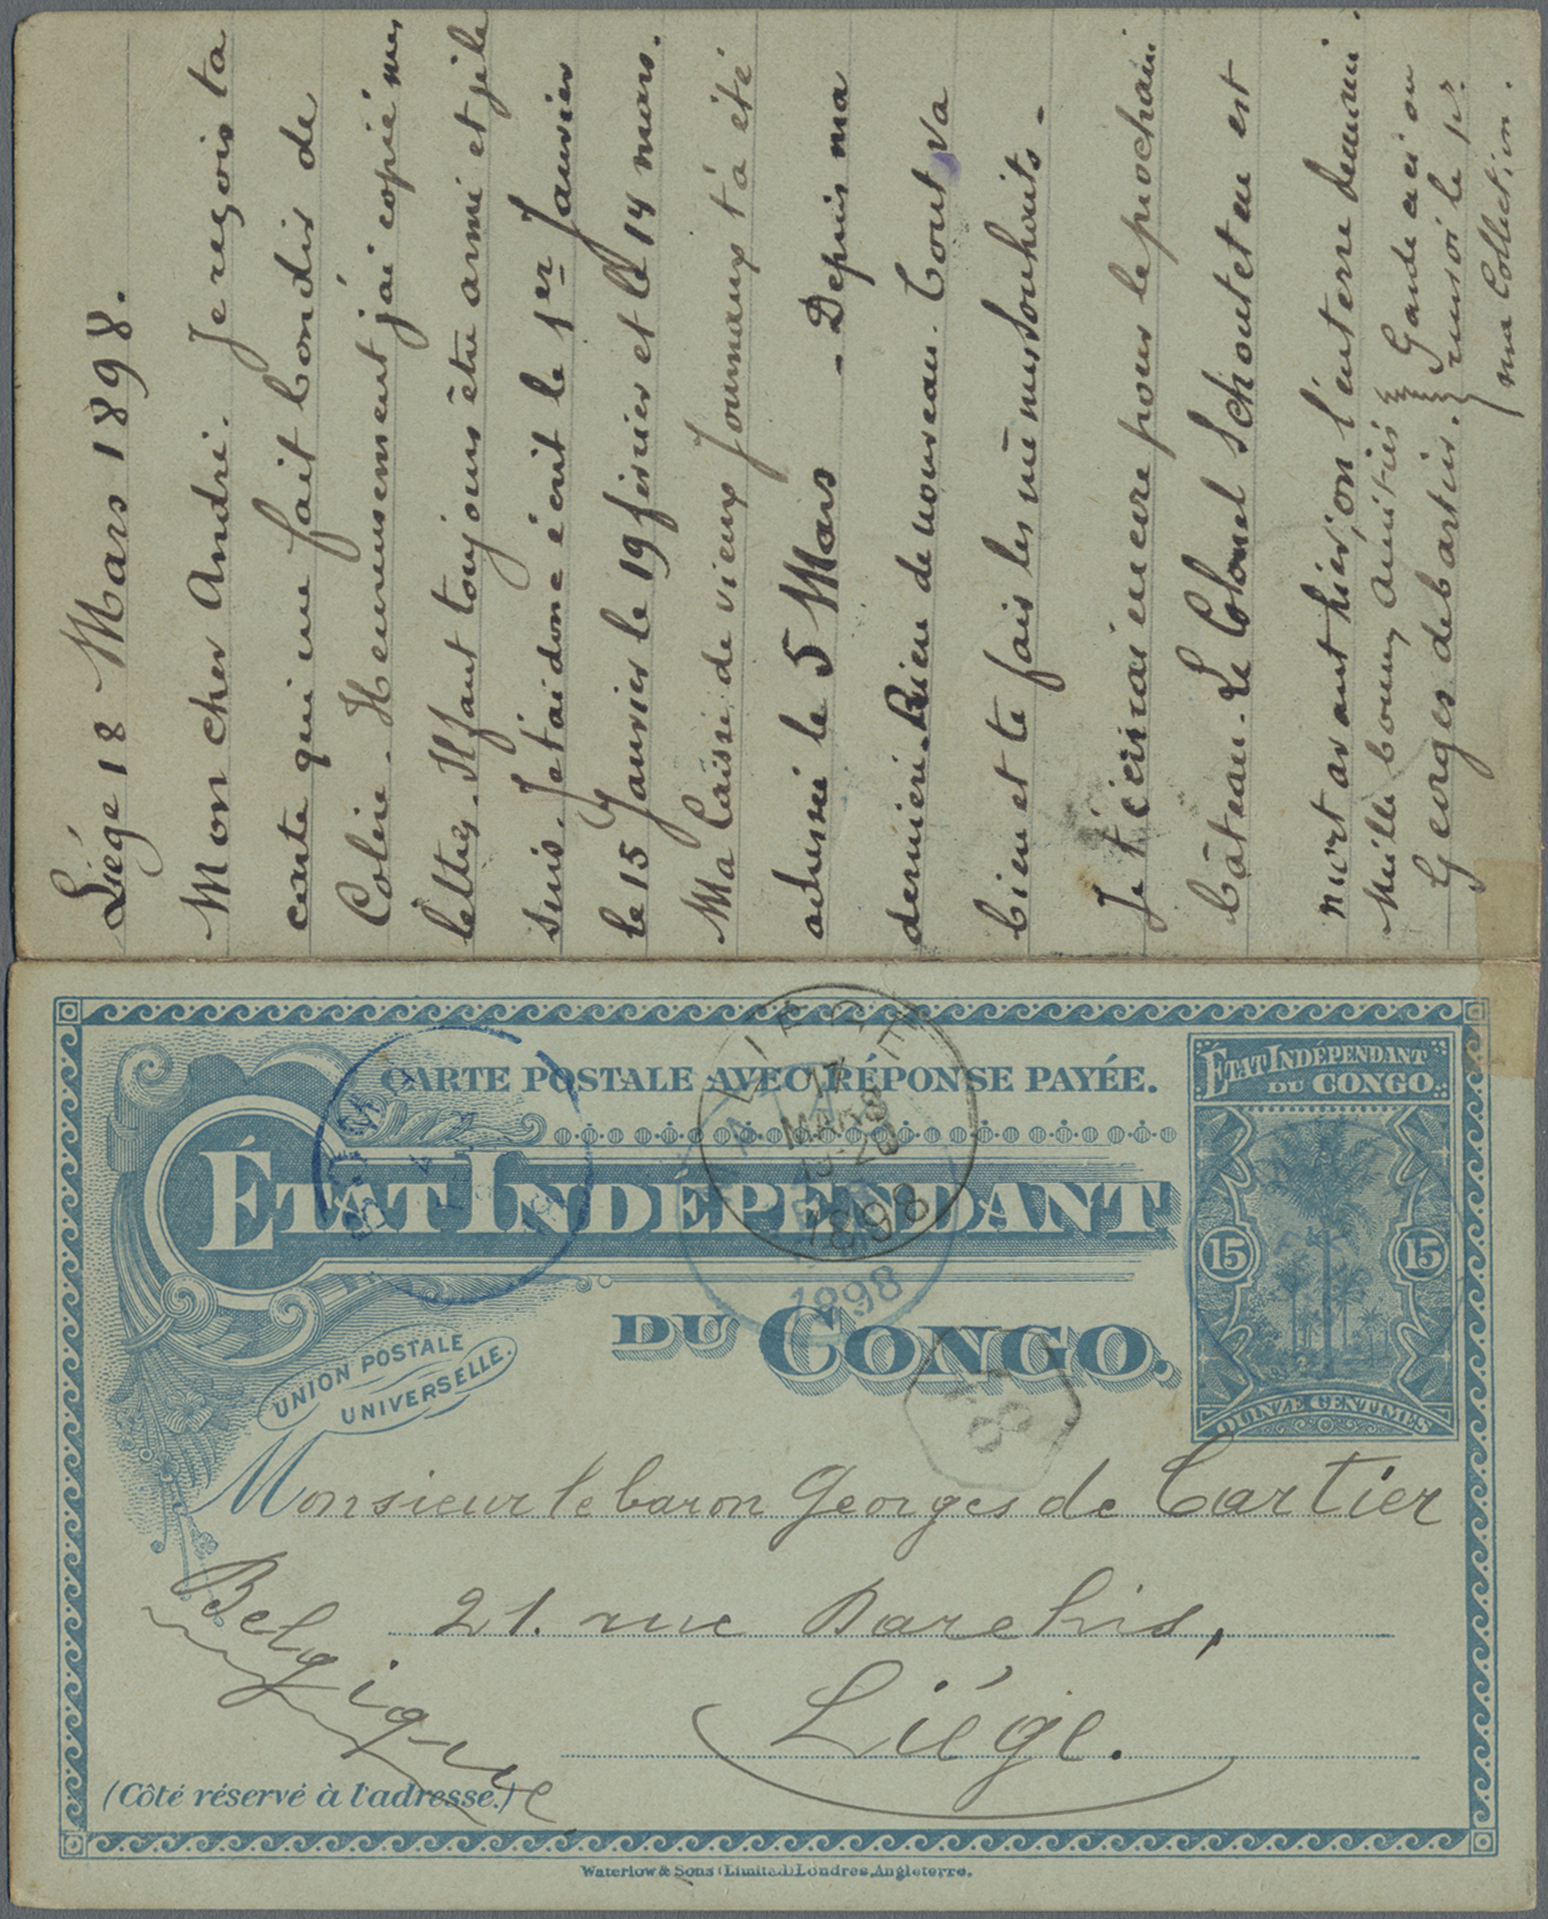 Liége 18 Mars 1898.
Mon cher André. Je reçois ta
carte qui me fait bondir de
Colère. Heureusement j'ai copié mes
lettres. Il faut toujours être armé et je le
suis. Je t'ai donc écrit le 1er Janvier
le 15 Janvier le 19 février et le 14 mars.
Ma Caisse de vieux Journaux t'a été
adressée le 5 Mars - Depuis ma
dernière. Rien de nouveau. Tout va
bien et te fais les mêmes souhaits -
Je t'écrirai encore pour le prochain
bâteau. Le Colonel Schouteten est
mort avant hier, on l'enterre demain.
Mille bonnes Amitiés
Georges de Cartier.
Garde ceci ou
renvoi le pr
ma Collection.
CARTE POSTALE AVEC RÉPONSE PAYÉE.
ÉTAT INDÉPENDANT
DU CONGO.
UNION POSTALE
UNIVERSELLE.
ÉTAT INDÉPENDANT
DU CONGO
15 15
QUINZE CENTIMES
LIÉGE
17
MARS
1898
1898
Monsieur le baron Georges de Cartier
21. rue Darchis,
Liége.
Belgique
(Côté réservé à l'adresse.)
Waterlow & Sons (Limited) Londres, Angleterre.